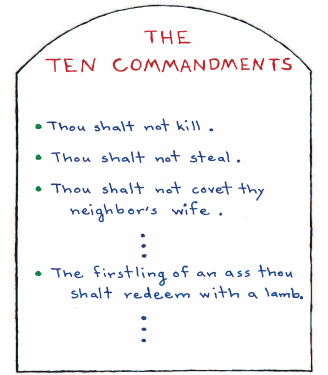 THE
TEN COMMANDMENTS
• Thou shalt not kill.
• Thou shalt not steal.
• Thou shalt not covet thy
neighbor's wife.
⋮
• The firstling of an ass thou
shalt redeem with a lamb.
⋮